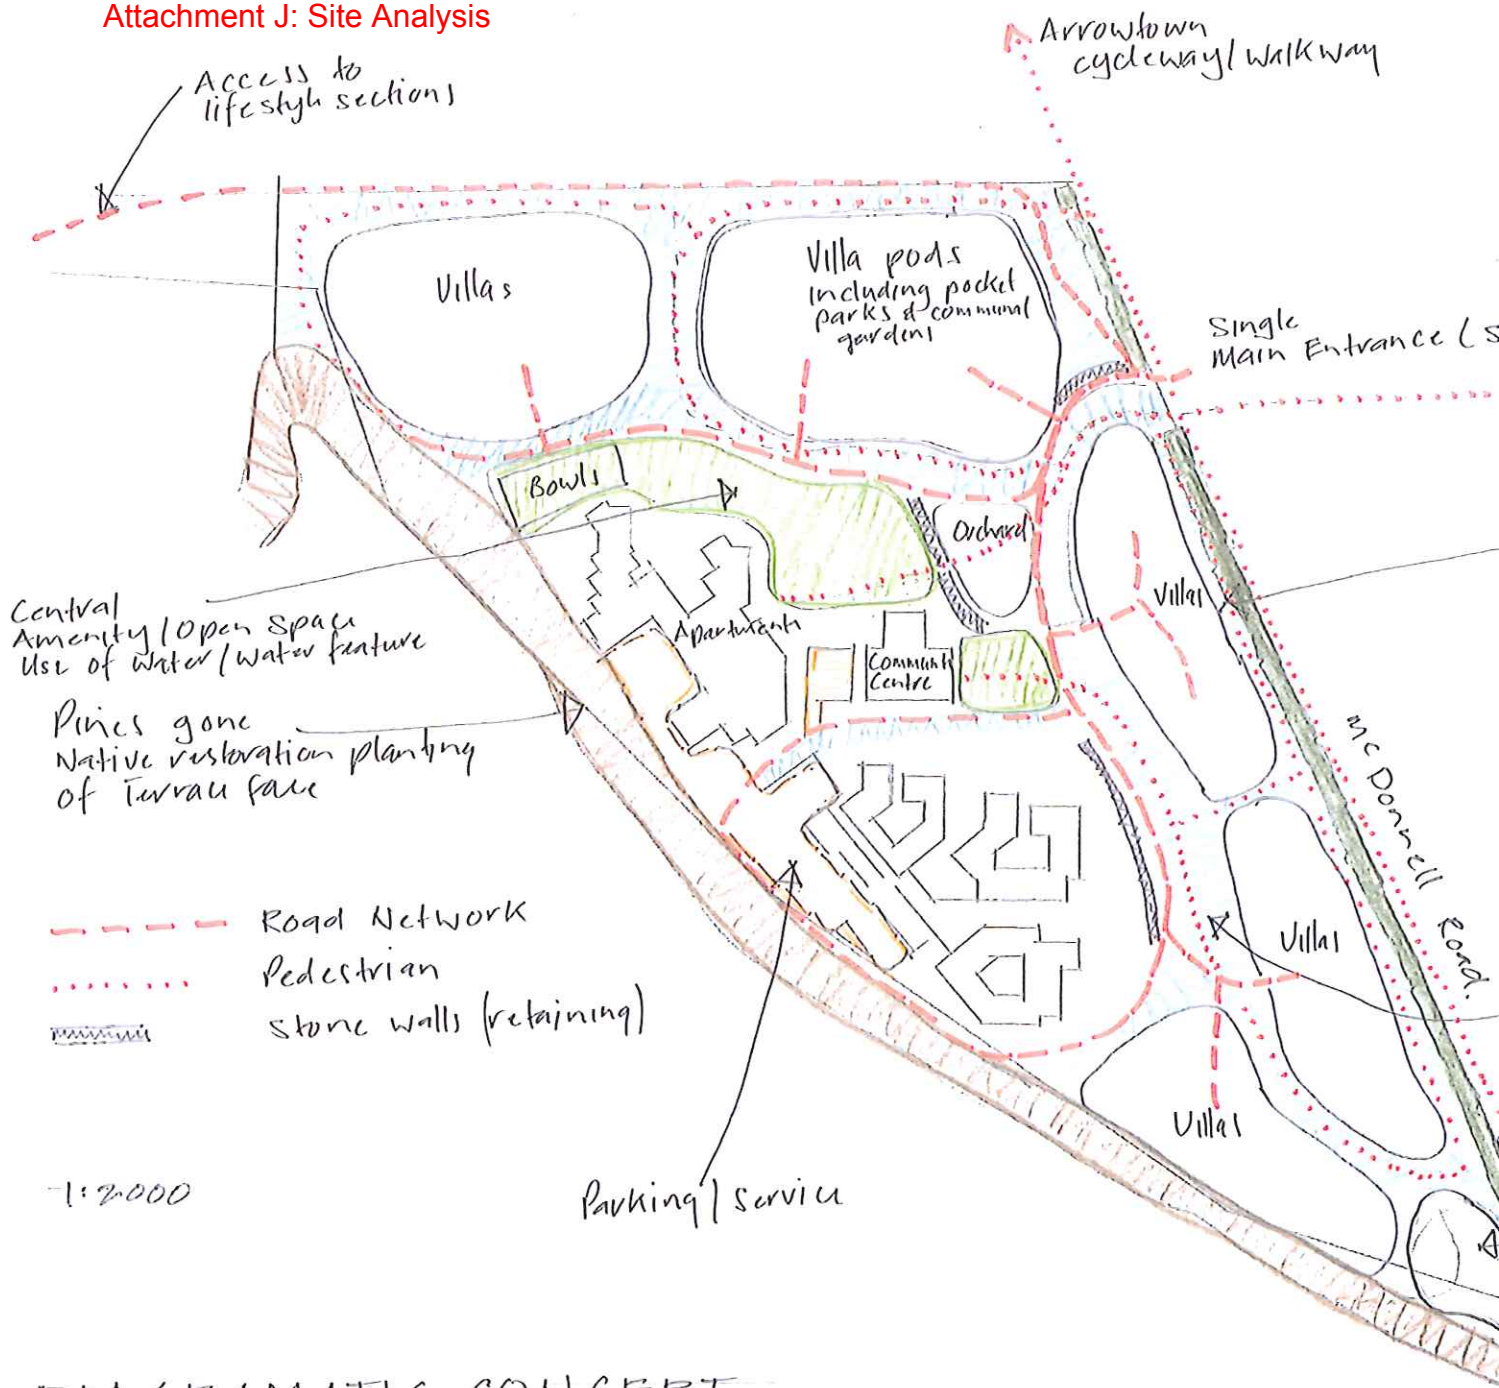 Attachment J: Site Analysis
Access to
lifestyle sections
Arrowtown
cycleway/walkway
Villas
Villa pods
Including pocket
parks & communal
gardens
Single
Main Entrance (s
Bowls
Orchard
Villas
Central
Amenity/Open space
Use of water/water feature
Apartments
Community
Centre
Pines gone
Native restoration planting
of Terrace face
McDonnell Road.
Road Network
Pedestrian
Stone walls (retaining)
Villas
Villas
1:2000
Parking/service
CONCEPT